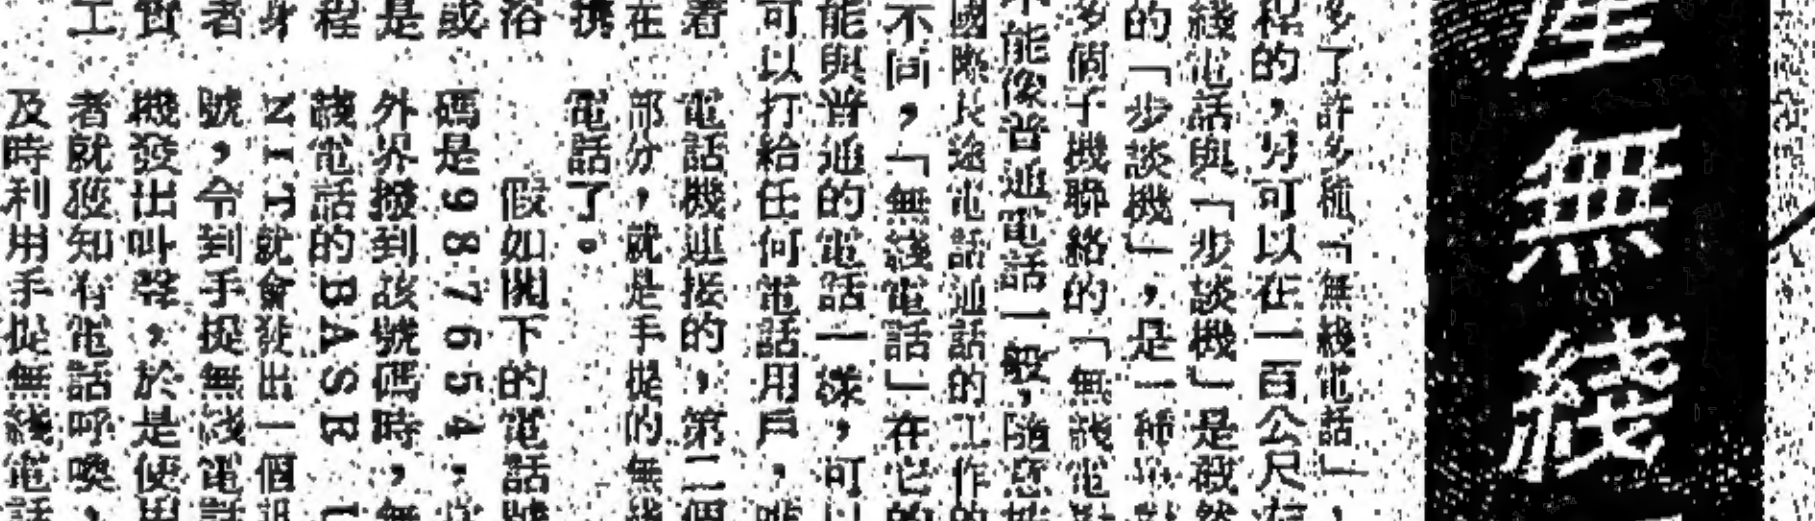 無綫
多了許多種「無綫電話」，
程的，另可以在一百公尺
綫電話與「步談機」是
的「步談機」，是一種
多個子機聯絡的「無綫電
不能像普通電話一般，隨意
國際長途電話通話的工作的
不同，「無綫電話」在它的
能與普通的電話一樣，可以
可以打給任何電話用戶，
着 電話機連接的，第二個
在 部分，就是手提的無綫
携 電話了。
浴 假如閣下的電話號
或 碼是987654，
是 外界撥到該號碼時，無
程 綫電話的BASE U
身 NIT就會發出一個訊
者 號，令到手提無綫電話
實 機發出叫聲，於是使用
工 者就獲知有電話呼喚，
及時利用手提無綫電話